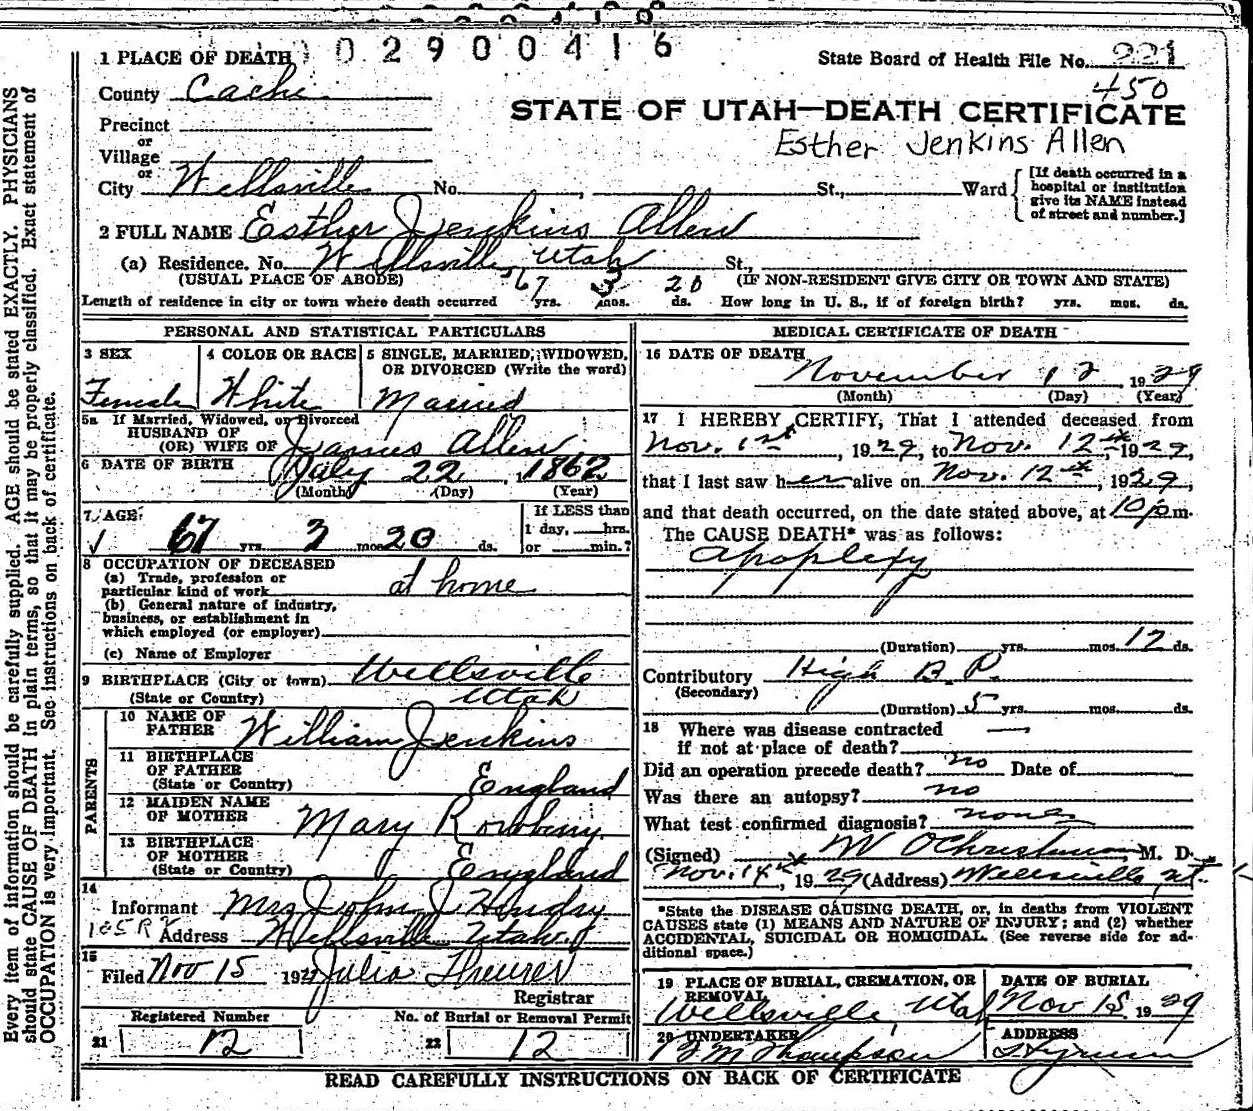 02900416
1 PLACE OF DEATH
State Board of Health File No. 221
450
County Cache
STATE OF UTAH—DEATH CERTIFICATE
Precinct
Esther Jenkins Allen
or
Village
or
City Wellsville No. , St., Ward
[If death occurred in a hospital or institution give its NAME instead of street and number.]
2 FULL NAME Esther Jenkins Allen
(a) Residence. No. Wellsville, Utah St.,
(USUAL PLACE OF ABODE) (IF NON-RESIDENT GIVE CITY OR TOWN AND STATE)
Length of residence in city or town where death occurred 67 yrs. 3 mos. 20 ds. How long in U. S., if of foreign birth? yrs. mos. ds.
PERSONAL AND STATISTICAL PARTICULARS
3 SEX
Female
4 COLOR OR RACE
White
5 SINGLE, MARRIED, WIDOWED,
OR DIVORCED (Write the word)
Married
5a If Married, Widowed, or Divorced
HUSBAND OF
(OR) WIFE OF James Allen
6 DATE OF BIRTH July 22, 1862
(Month) (Day) (Year)
7 AGE
67 yrs. 3 mos. 20 ds.
If LESS than
1 day, hrs.
or min.?
8 OCCUPATION OF DECEASED
(a) Trade, profession or
particular kind of work at home
(b) General nature of industry,
business, or establishment in
which employed (or employer)
(c) Name of Employer
9 BIRTHPLACE (City or town) Wellsville
(State or Country) Utah
PARENTS
10 NAME OF
FATHER William Jenkins
11 BIRTHPLACE
OF FATHER
(State or Country) England
12 MAIDEN NAME
OF MOTHER Mary Rowberry
13 BIRTHPLACE
OF MOTHER
(State or Country) England
14
Informant Mrs John J Hendry
Address Wellsville Utah
15
Filed Nov 15 1929 Julia Theurer
Registrar
Registered Number No. of Burial or Removal Permit
21 12 22 12
MEDICAL CERTIFICATE OF DEATH
16 DATE OF DEATH
November 12, 1929
(Month) (Day) (Year)
17 I HEREBY CERTIFY, That I attended deceased from
Nov. 1st, 1929, to Nov. 12th, 1929,
that I last saw her alive on Nov. 12th, 1929,
and that death occurred, on the date stated above, at 10 p.m.
The CAUSE DEATH* was as follows:
Apoplexy
(Duration) yrs. mos. 12 ds.
Contributory High B.P.
(Secondary)
(Duration) 5 yrs. mos. ds.
18 Where was disease contracted
if not at place of death? —
Did an operation precede death? no Date of
Was there an autopsy? no
What test confirmed diagnosis? none
(Signed) M. D.
Nov. 14th, 1929 (Address) Wellsville, Ut.
*State the DISEASE CAUSING DEATH, or, in deaths from VIOLENT
CAUSES state (1) MEANS AND NATURE OF INJURY; and (2) whether
ACCIDENTAL, SUICIDAL OR HOMICIDAL. (See reverse side for ad-
ditional space.)
19 PLACE OF BURIAL, CREMATION, OR
REMOVAL
Wellsville, Utah
DATE OF BURIAL
Nov 15 1929
20 UNDERTAKER
B M Thompson
ADDRESS
Hyrum
READ CAREFULLY INSTRUCTIONS ON BACK OF CERTIFICATE
Every item of information should be carefully supplied. AGE should be stated EXACTLY. PHYSICIANS
should state CAUSE OF DEATH in plain terms, so that it may be properly classified. Exact statement of
OCCUPATION is very important. See instructions on back of certificate.